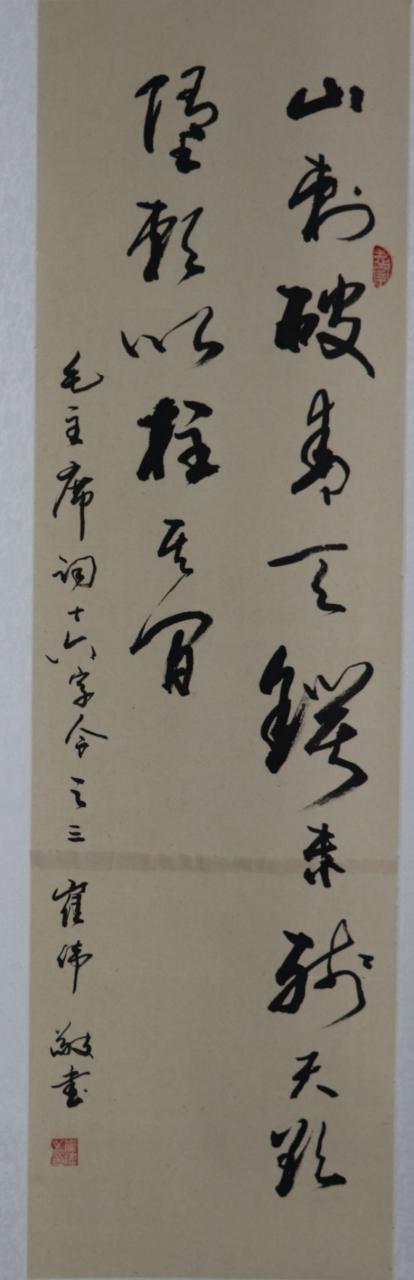 山刺破青天锷未残天欲
堕赖以柱其间
毛主席词十六字令之三 崔伟 敬书